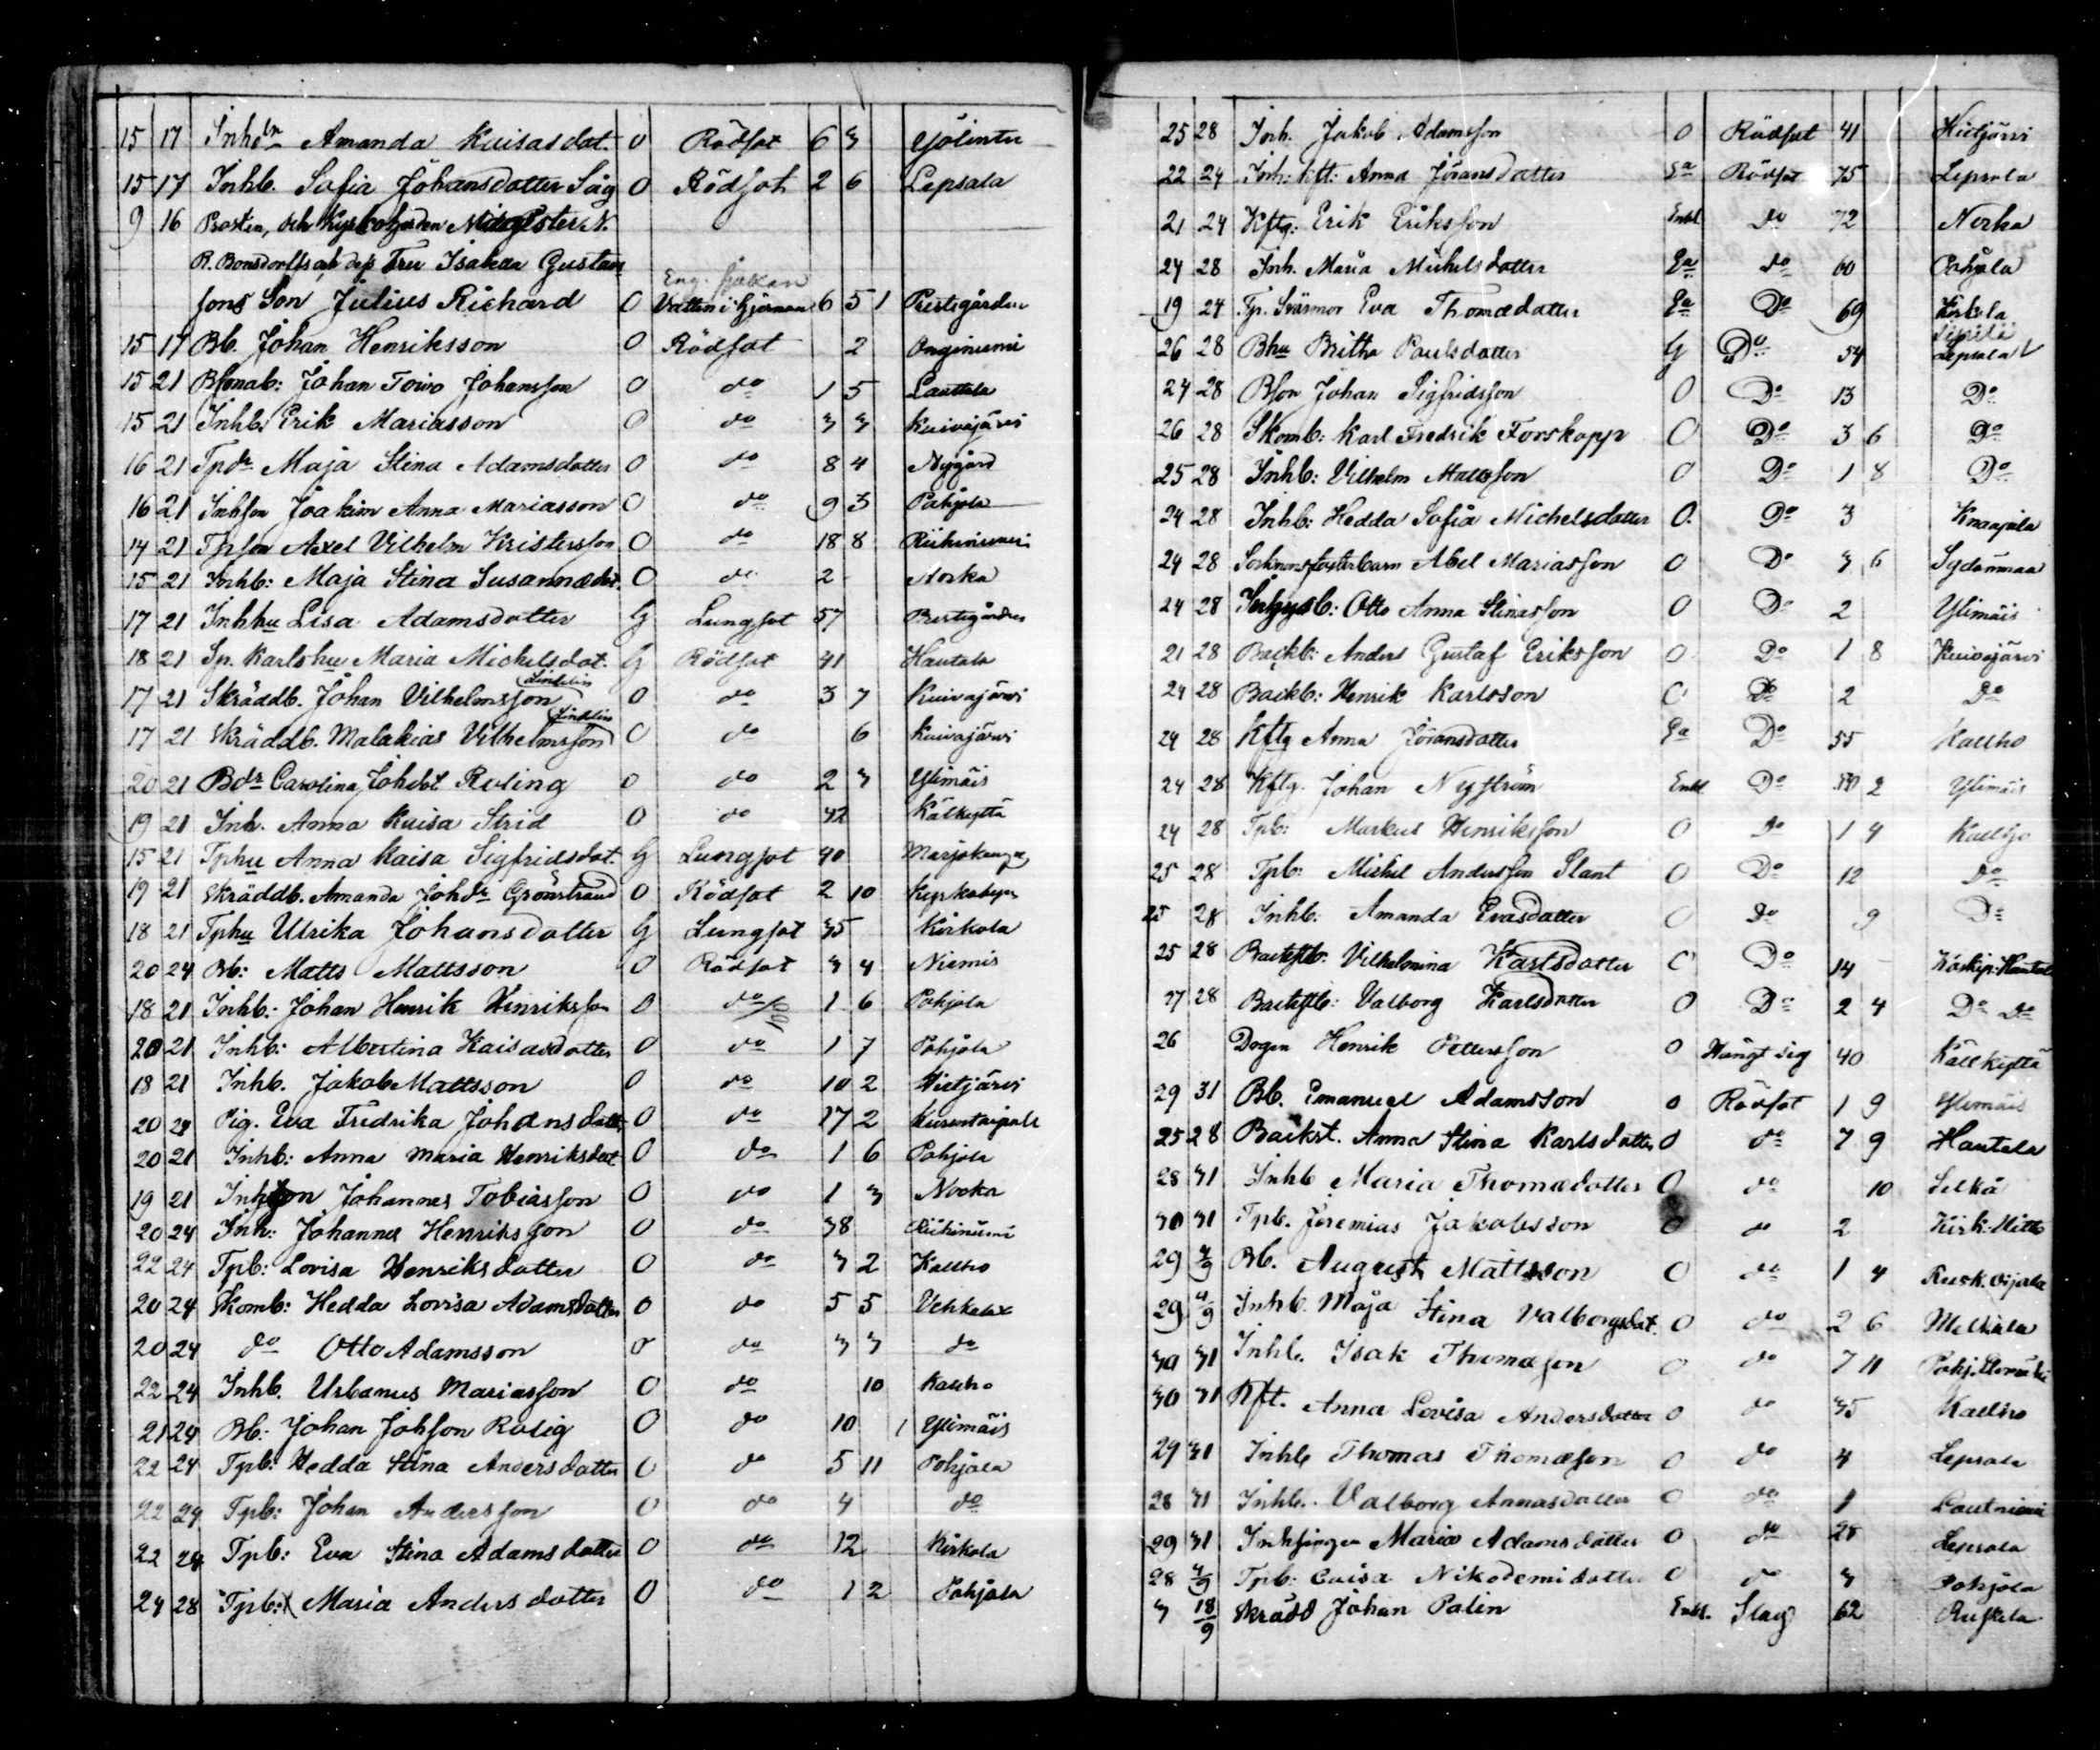 15 17 Inhdr Amanda Kaisasdot. O Rödsot 6 3 Yölintu
15 17 Inhb. Sofia Johansdotter Säg O Rödsot 2 6 Lepsala
9 16 Prosten, och Kyrkoherden Magister N.
R. Bonsdorffs och dess Fru Isabella Gustav
sons Son Julius Richard O Eng. sjukan Vatten i Hjernan 6 5 1 Prestgården
15 17 Bb. Johan Henriksson O Rödsot 2 Onginiemi
15 21 Bsonab: Johan Toivo Johansson O do 1 5 Lauttala
15 21 Inhb. Erik Mariasson O do 3 3 Kuivajärvi
16 21 Tpdr Maja Stina Adamsdotter O do 8 4 Nygård
16 21 Inhson Joakim Anna Mariasson O do 9 3 Pohjola
14 21 Tpson Axel Vilhelm Kristersson O do 18 8 Riihiniemi
15 21 Inhb: Maja Stina Susannædot. O do 2 Norka
17 21 Inhhu Lisa Adamsdotter G Lungsot 57 Prestegården
18 21 Sp. Karlshu Maria Michelsdot. G Rödsot 41 Hautala
17 21 Skräddb. Johan Vilhelmsson Lindelin O do 3 7 Kuivajärvi
17 21 Skräddb. Malakias Vilhelmsson Lindelin O do 6 Kuivajärvi
20 21 Bdr Carolina Johdot Roling O do 2 3 Ylimäis
19 21 Inh. Anna Kaisa Strid O do 42 Kälkyttä
15 21 Tphu Anna Kaisa Sigfridsdot. G Lungsot 40
19 21 Skräddb. Amanda Johdr Grönstrand O Rödsot 2 10 Kyrkobyn
18 21 Tphu Ulrika Johansdotter G Lungsot 35 Kirkola
20 24 Bb: Matts Mattsson O Rödsot 3 4 Niemis
18 21 Inhb: Johan Henrik Henriksson O do 100 1 6 Pohjola
20 21 Inhb: Albertina Kaisasdotter O do 1 7 Pohjola
18 21 Inhb. Jakob Mattsson O do 10 2 Hietjärvi
20 24 Pig. Eva Fredrika Johansdotter O do 17 2
20 21 Inhb: Anna Maria Henriksdot O do 1 6 Pohjola
19 21 Inhson Johannes Tobiasson O do 1 3 Norka
20 24 Inh: Johannes Henriksson O do 38 Riihiniemi
22 24 Tpb: Lovisa Henriksdotter O do 3 2 Kallho
20 24 Skomb: Hedda Lovisa Adamsdotter O do 5 5
20 24 do Otto Adamsson O do 3 3 do
22 24 Inhb. Urbanus Mariasson O do 10 Kallho
21 24 Bb: Johan Johsson Rolig O do 10 1 Ylimäis
22 24 Tpb: Hedda Stina Andersdotter O do 5 11 Pohjala
22 24 Tpb: Johan Andersson O do 4 do
22 24 Tpb: Eva Stina Adamsdotter O do 12 Kirkola
24 28 Tpb: Maria Andersdotter O do 1 2 Pohjala
25 28 Inh. Jakob Adamsson O Rödsot 41 Hietjärvi
22 24 Inh: kft: Anna Jöransdotter Ea Rödsot 75 Lepsala
21 24 Kftg: Erik Eriksson Enkl Do 72 Norka
24 28 Inh. Maria Michelsdotter Ea do 60 Pohjala
19 24 Tp. Svärmor Eva Thomædotter Ea Do 69 Kirkola
26 28 Bhu Britha Paulsdotter G Do 54 Lepsala
24 28 Bson Johan Sigfridsson O Do 13 Do
26 28 Skomb: Karl Fredrik Forskopp O Do 3 6 Do
25 28 Inhb: Vilhelm Mattsson O Do 1 8 Do
24 28 Inhb: Hedda Sofia Michelsdotter O. Do 3 Knaapila
24 28 Socknensfosterbarn Abel Mariasson O Do 3 6 Sydänmaa
24 28 Otto Anna Stinasson O Do 2 Ylimäis
21 28 Backb: Anders Gustaf Eriksson O Do 1 8 Kuivajärvi
24 28 Backb: Henrik Karlsson O Do 2 Do
24 28 Kftg Anna Jöransdotter Ea Do 55 Kallho
24 28 Kftg. Johan Nyström Enkl Do 2 Ylimäis
24 28 Tpb: Markus Henriksson O Do 1 4
25 28 Tpb: Michel Andersson Slant O Do 12 Do
25 28 Inhb: Amanda Evasdotter O Do 9 Do
25 28 Vilhelmina Karlsdotter O Do 14
27 28 Valborg Karlsdotter O Do 2 4 Do Do
26 Drgen Henrik Pettersson O Hängt sig 40 Källkyttä
29 31 Bb. Emanuel Adamsson O Rödsot 1 9 Ylimäis
25 28 Backst. Anna Stina Karlsdotter O do 7 9 Hautala
28 31 Inhb Maria Thomædotter O do 10 Selkä
30 31 Tpb. Jeremias Jakobsson O do 2
29 4/9 Bb. August Mattsson O do 1 4
29 4/9 Inhb. Maja Stina Valborgsdot. O do 2 6 Melkala
30 31 Inhb. Isak Thomæson O do 7 11
30 31 Kft. Anna Lovisa Andersdotter O do 35 Kallho
29 31 Inhb Thomas Thomæson O do 4 Lepsala
28 31 Inhb. Valborg Annasdotter O do 1 Lautniemi
29 31 Maria Adamsdotter O do 28 Lepsala
28 4/9 Tpb: Caisa Nikodemidotter O do 3 Pohjola
3 18/9 Skrädd Johan Palin Enkl. Slag 62 Ruskela